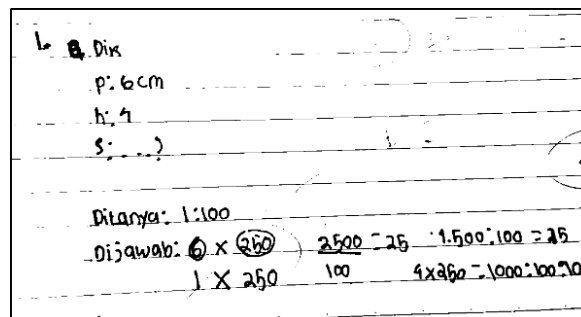 1. Dik
p: 6cm
h: 4
s: ...?
Ditanya: 1:100
Dijawab: 6 x 250 2500 = 25 1.500:100 = 25
1 x 250 100 4x250 = 1000:100=10